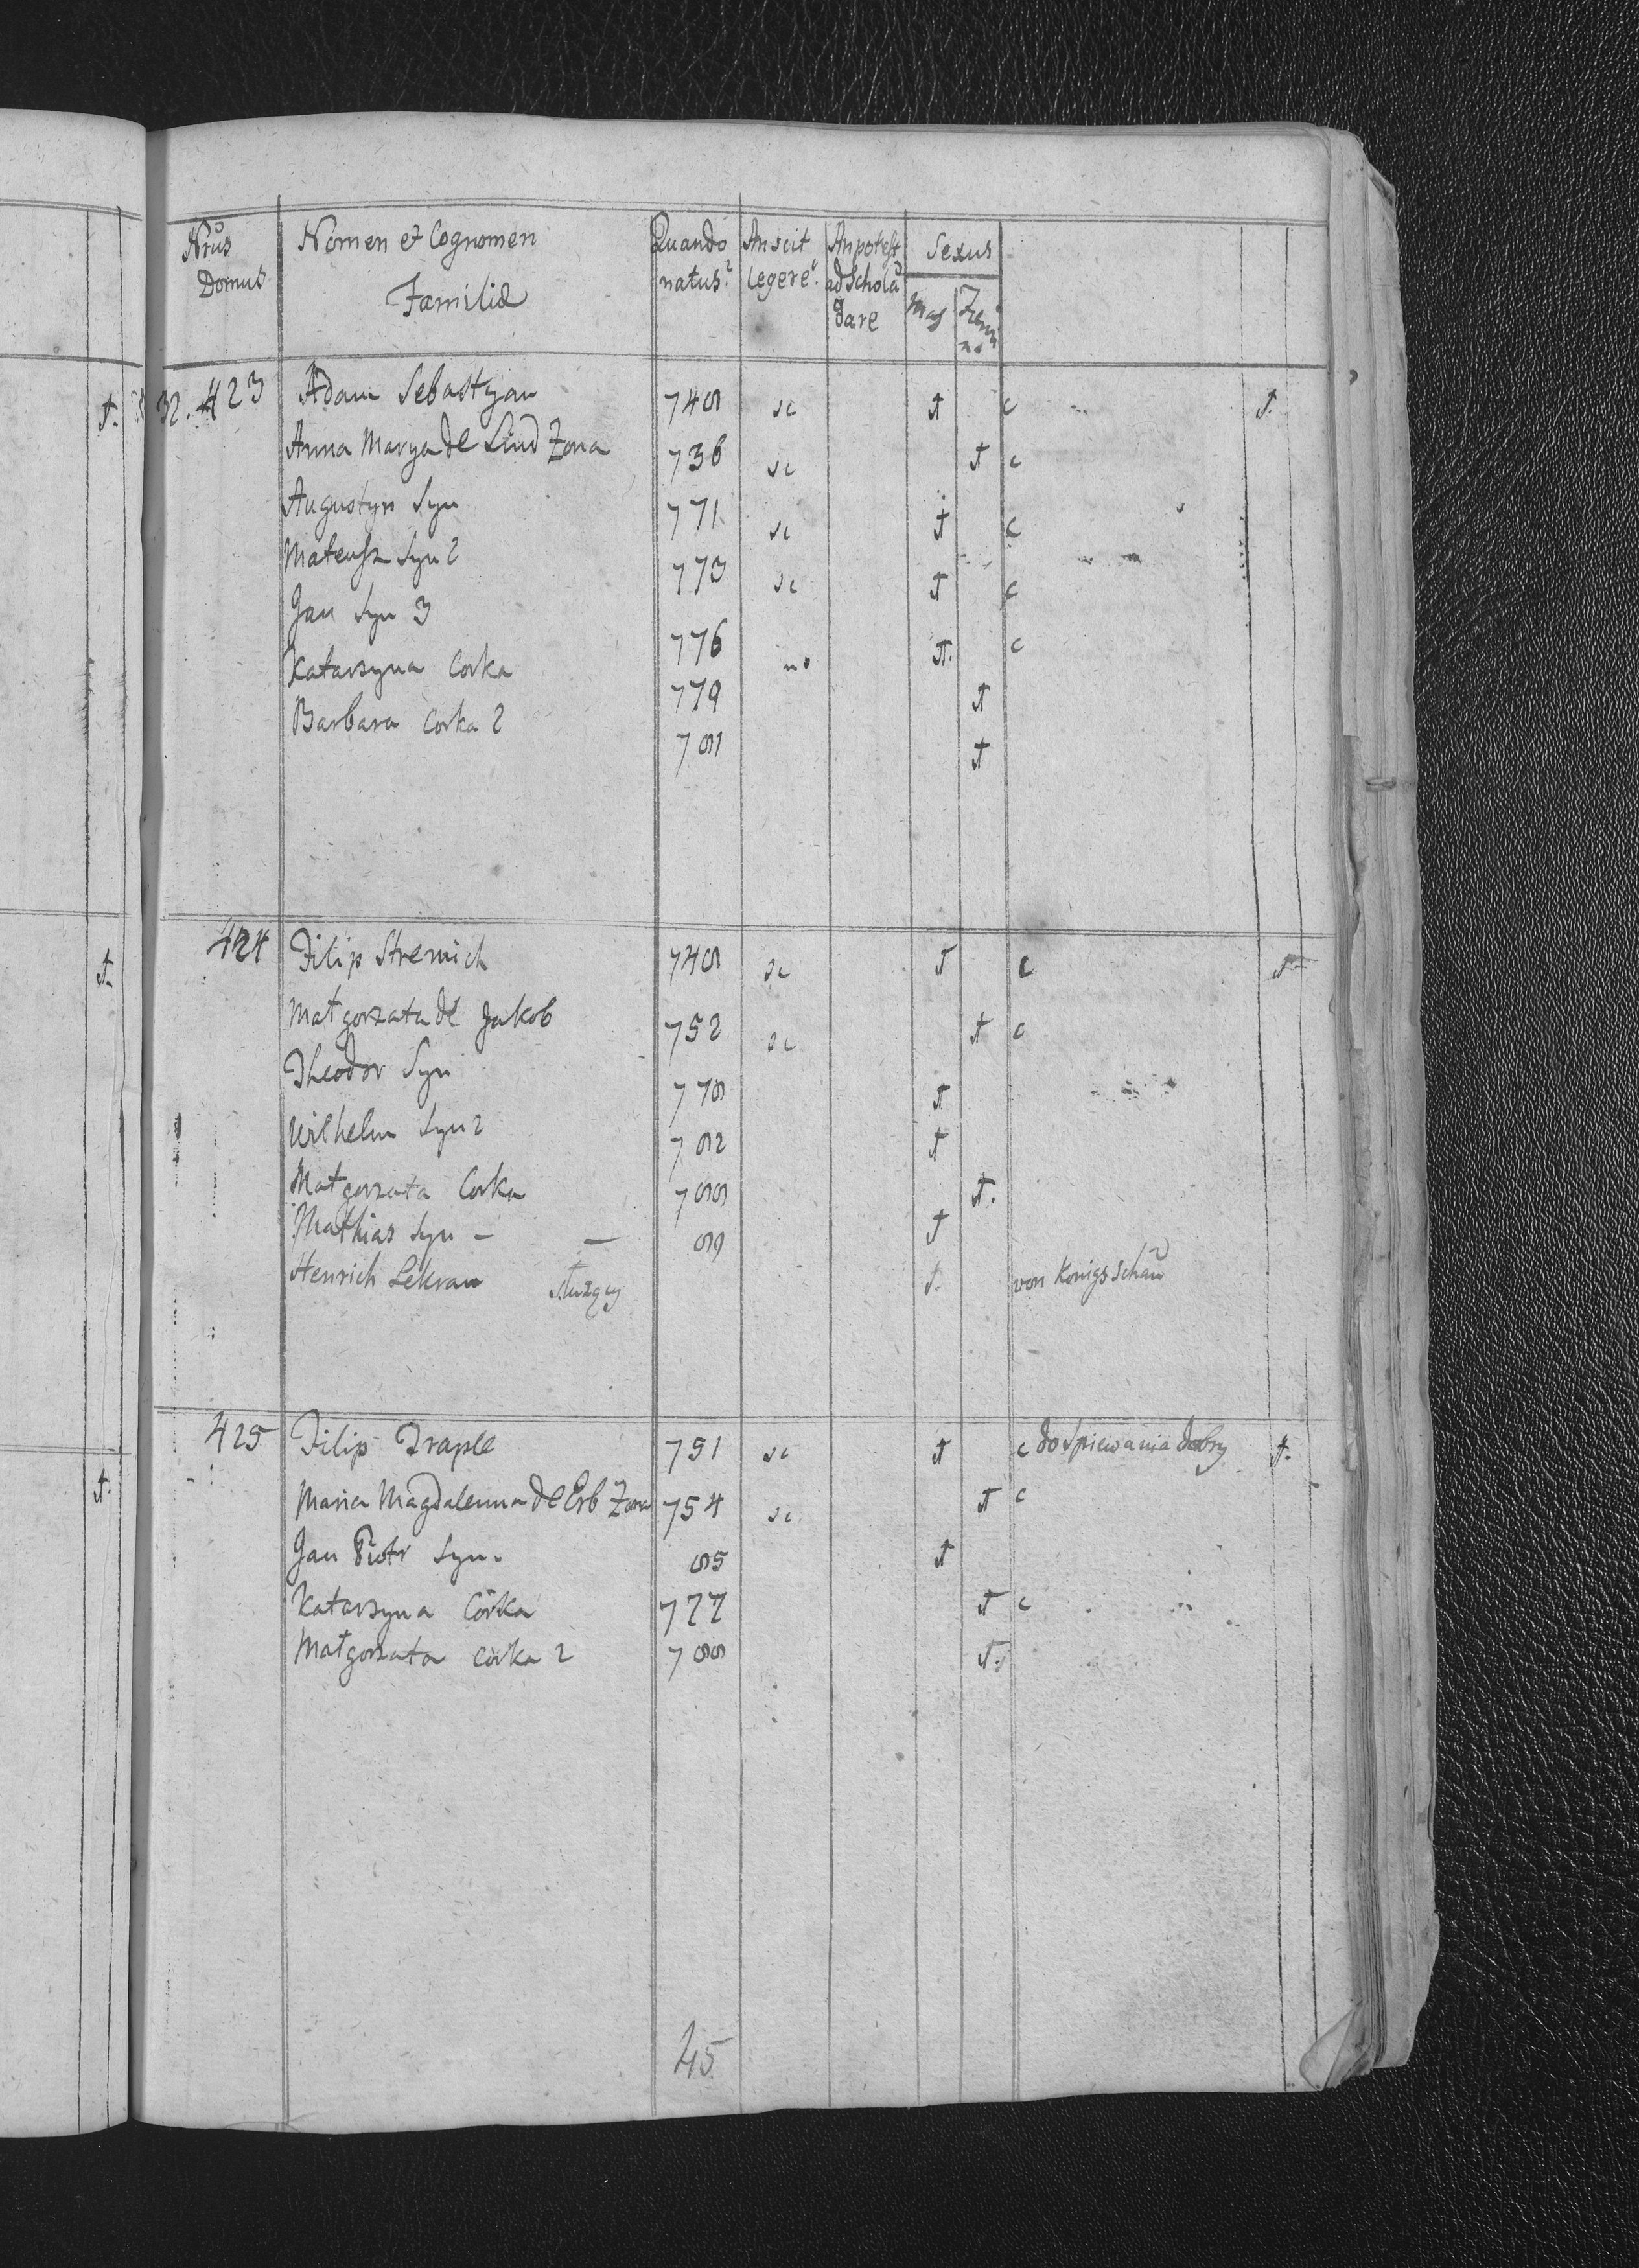 Nrus Domus Nomen et Cognomen Familiæ Quando natus? An scit legere? An potest ad Scholã dare Sexus Mas Fem
32. 423 Adam Sebastyan 748 sc † c †.
Anna Marya de Lind Zona 736 sc † c
Augustyn Syn 771 sc † c
Mateusz Syn 2 773 sc † c
Jan Syn 3 776 no †. c
Katarzyna Corka 779 †
Barbara Corka 2 781 †
424 Filip Stremich 748 sc † c †
Małgorzata de Jakob 752 sc † c
Theodor Syn 778 †
Wilhelm Syn 2 782 †
Małgorzata Corka 788 †.
Mathias Syn - - 89 †
Henrich Lekran Służący †. von Konigsschau
425 Filip Draple 751 sc † c do Spiewania dobry †.
Maria Magdalenna de Erb Zona 754 sc † c
Jan Piotr Syn. 85 †
Katarzyna Córka 777 † c
Małgorzata Córka 2 788 †.
45